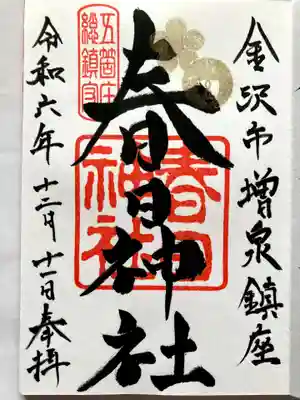 金沢市増泉鎮座
春日神社
令和六年十二月十一日奉拝
五箇庄
総鎮守
春日
神社